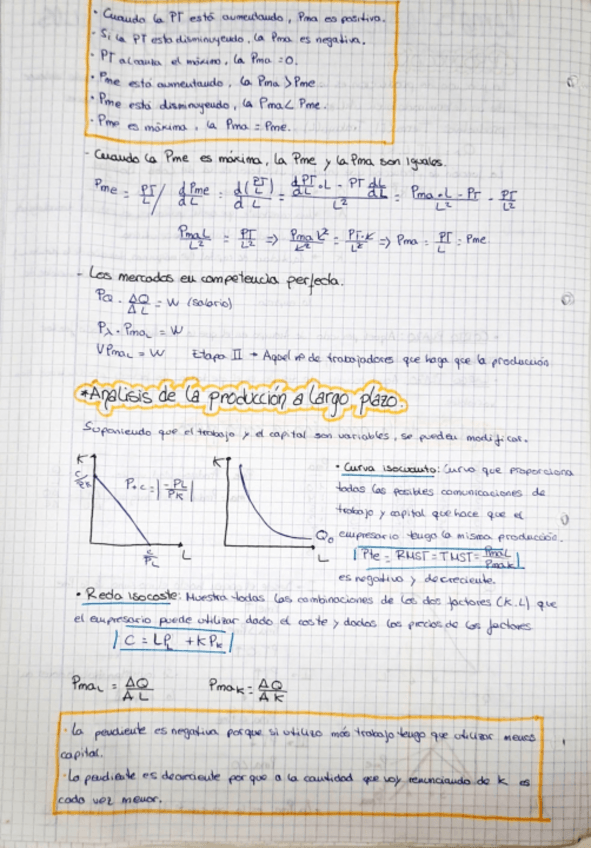 · Cuando la PT está aumentando, Pma es positiva.
· Si la PT esta disminuyendo, la Pma es negativa.
· PT alcanza el máximo, la Pma = 0.
· Pme está aumentando, la Pma > Pme
· Pme está disminuyendo, la Pma < Pme.
· Pme es máxima, la Pma = Pme.
- Cuando la Pme es máxima, la Pme y la Pma son iguales.
Pme = PT/L / dPme/dL = d(PT/L)/dL = (dPT/dL · L - PT dL/dL)/L² = (Pma · L - PT)/L² = PT/L²
PmaL/L² = PT/L² => Pma L²/L² = PT·L/L² => Pma = PT/L = Pme
- Los mercados en competencia perfecta.
PQ · ΔQ/ΔL = W (salario)
Pλ · PmaL = W
VPmaL = W Etapa II → Aquel nº de trabajadores que haga que la producción
*Análisis de la producción a largo plazo.
Suponiendo que el trabajo y el capital son variables, se pueden modificar.
K C/PK P+c = |-PL/PK| C/PL L
K Q₀ L
• Curva isocuanta: Curva que proporciona
todas las posibles comunicaciones de
trabajo y capital que hace que el
empresario tenga la misma producción.
Pte = RMST = TMST = PmaL/PmaK
es negativo y decreciente.
• Recta isocoste: Muestra todas las combinaciones de los dos factores (K.L) que
el empresario puede utilizar dado el coste y dados los precios de los factores
C = LPL + KPK
PmaL = ΔQ/ΔL PmaK = ΔQ/ΔK
· La pendiente es negativa porque si utilizo más trabajo tengo que utilizar menos
capital.
· La pendiente es decreciente porque a la cantidad que voy renunciando de K es
cada vez menor.